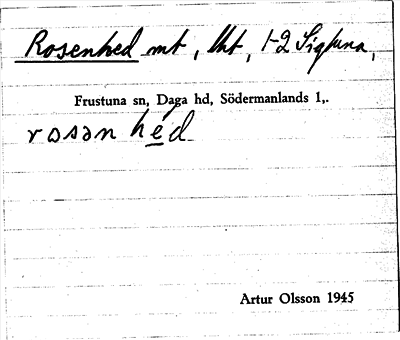 Rosenhed mt, lht, 1-2 Sigtuna,
Frustuna sn, Daga hd, Södermanlands l,.
rosən hed
Artur Olsson 1945